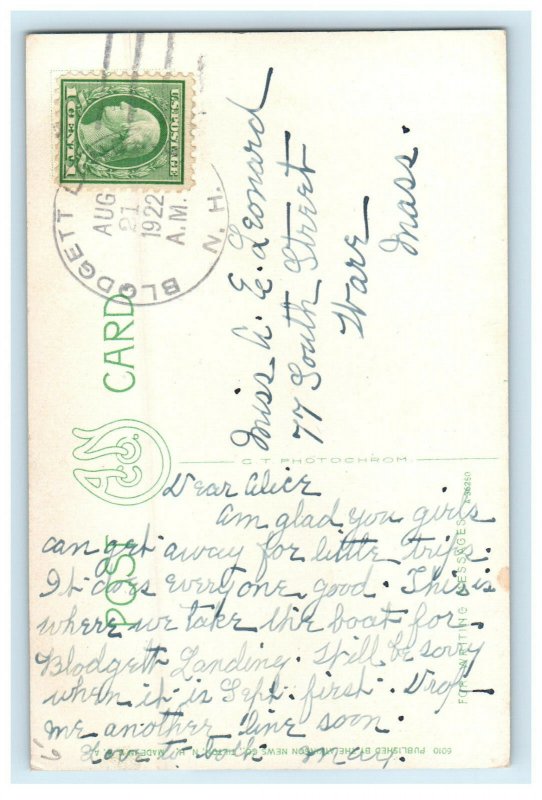 U.S. POSTAGE
1 CENT 1
BLODGETT
N.H.
AUG
21
1922
A.M.
POST CARD
A.C.Co.
C.T. PHOTOCHROM
Miss A. E. Leonard
77 South Street
Ware
Mass.
Dear Alice
Am glad you girls
can get away for little trips.
It does everyone good. This is
where we take the boat for
Blodgett Landing. Will be sorry
when it is Sept. first. Drop
me another line soon.
Love to both May.
FOR WRITING MESSAGES
A-36250
6010 PUBLISHED BY THE ATKINSON NEWS CO., TILTON, N. H. MADE IN U. S. A.